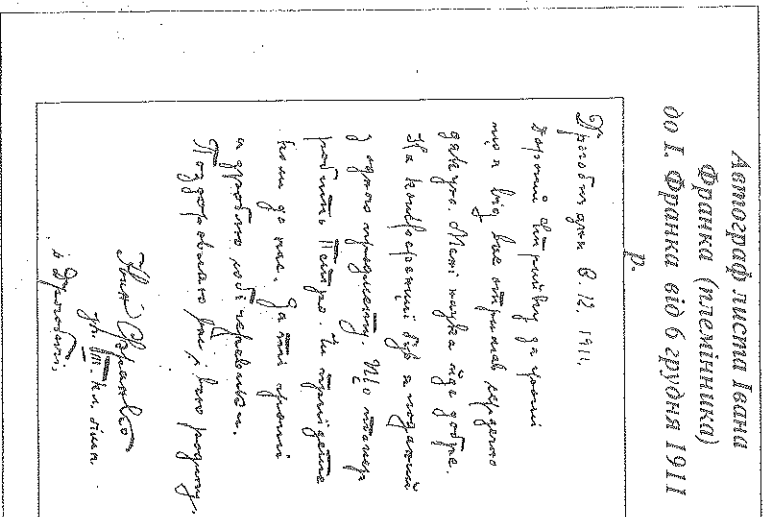 Автограф листа Івана
Франка (племінника)
до І. Франка від 6 грудня 1911
р.
6. 12. 1911.
Дорогий Стрийку за гроші
що я від Вас отримав сердечно
дякую. Мені наука йде добре.
На конференції був я
з одного предмету. Що тепер
робить Петро. Чи приїдете
коли до нас. За ті гроші
я зроблю собі черевики.
Поздоровляю Вас і Вашу родину.
Іван Франко
уч. III. кл. гімн.
в Дрогобичі.